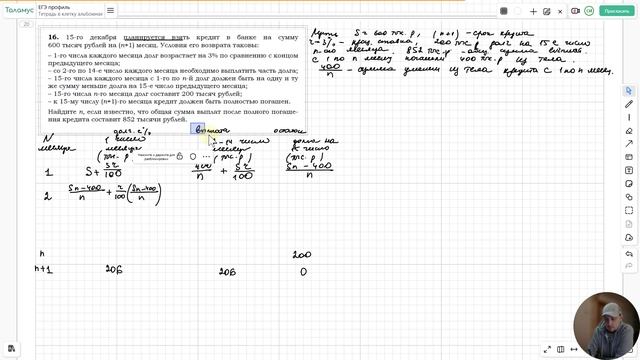 Таламус
ЕГЭ профиль
Тетрадь в клетку альбомная
100%
Пригласить
20
16. 15-го декабря планируется взять кредит в банке на сумму
600 тысяч рублей на (n+1) месяц. Условия его возврата таковы:
– 1-го числа каждого месяца долг возрастает на 3% по сравнению с концом
предыдущего месяца;
– со 2-го по 14-е число каждого месяца необходимо выплатить часть долга;
– 15-го числа каждого месяца с 1-го по n-й долг должен быть на одну и ту
же сумму меньше долга на 15-е число предыдущего месяца;
– 15-го числа n-го месяца долг составит 200 тысяч рублей;
– к 15-му числу (n+1)-го месяца кредит должен быть полностью погашен.
Найдите n, если известно, что общая сумма выплат после полного погаше-
ния кредита составит 852 тысячи рублей.
Пусть S = 600 тыс. р, (n+1) - срок кредита
r = 3% - ставка, 200 тыс р долг на 15е число
n-го месяца. 852 тыс р - общ. сумма выплат.
С 1 по n месяц погасили 400 тыс. р из тела.
400/n - сумма из тела кредита с 1 по n мес.
N месяца
долг с %
1 число
месяца
(тыс. р)
выплата
2-14 число
месяца
(тыс. р)
остаток
долга на
15 число
(тыс. р)
1 S + Sr/100 400/n + Sr/100 (Sn - 400)/n
2 (Sn - 400)/n + r/100 ((Sn - 400)/n)
n 200
n+1 206 206 0